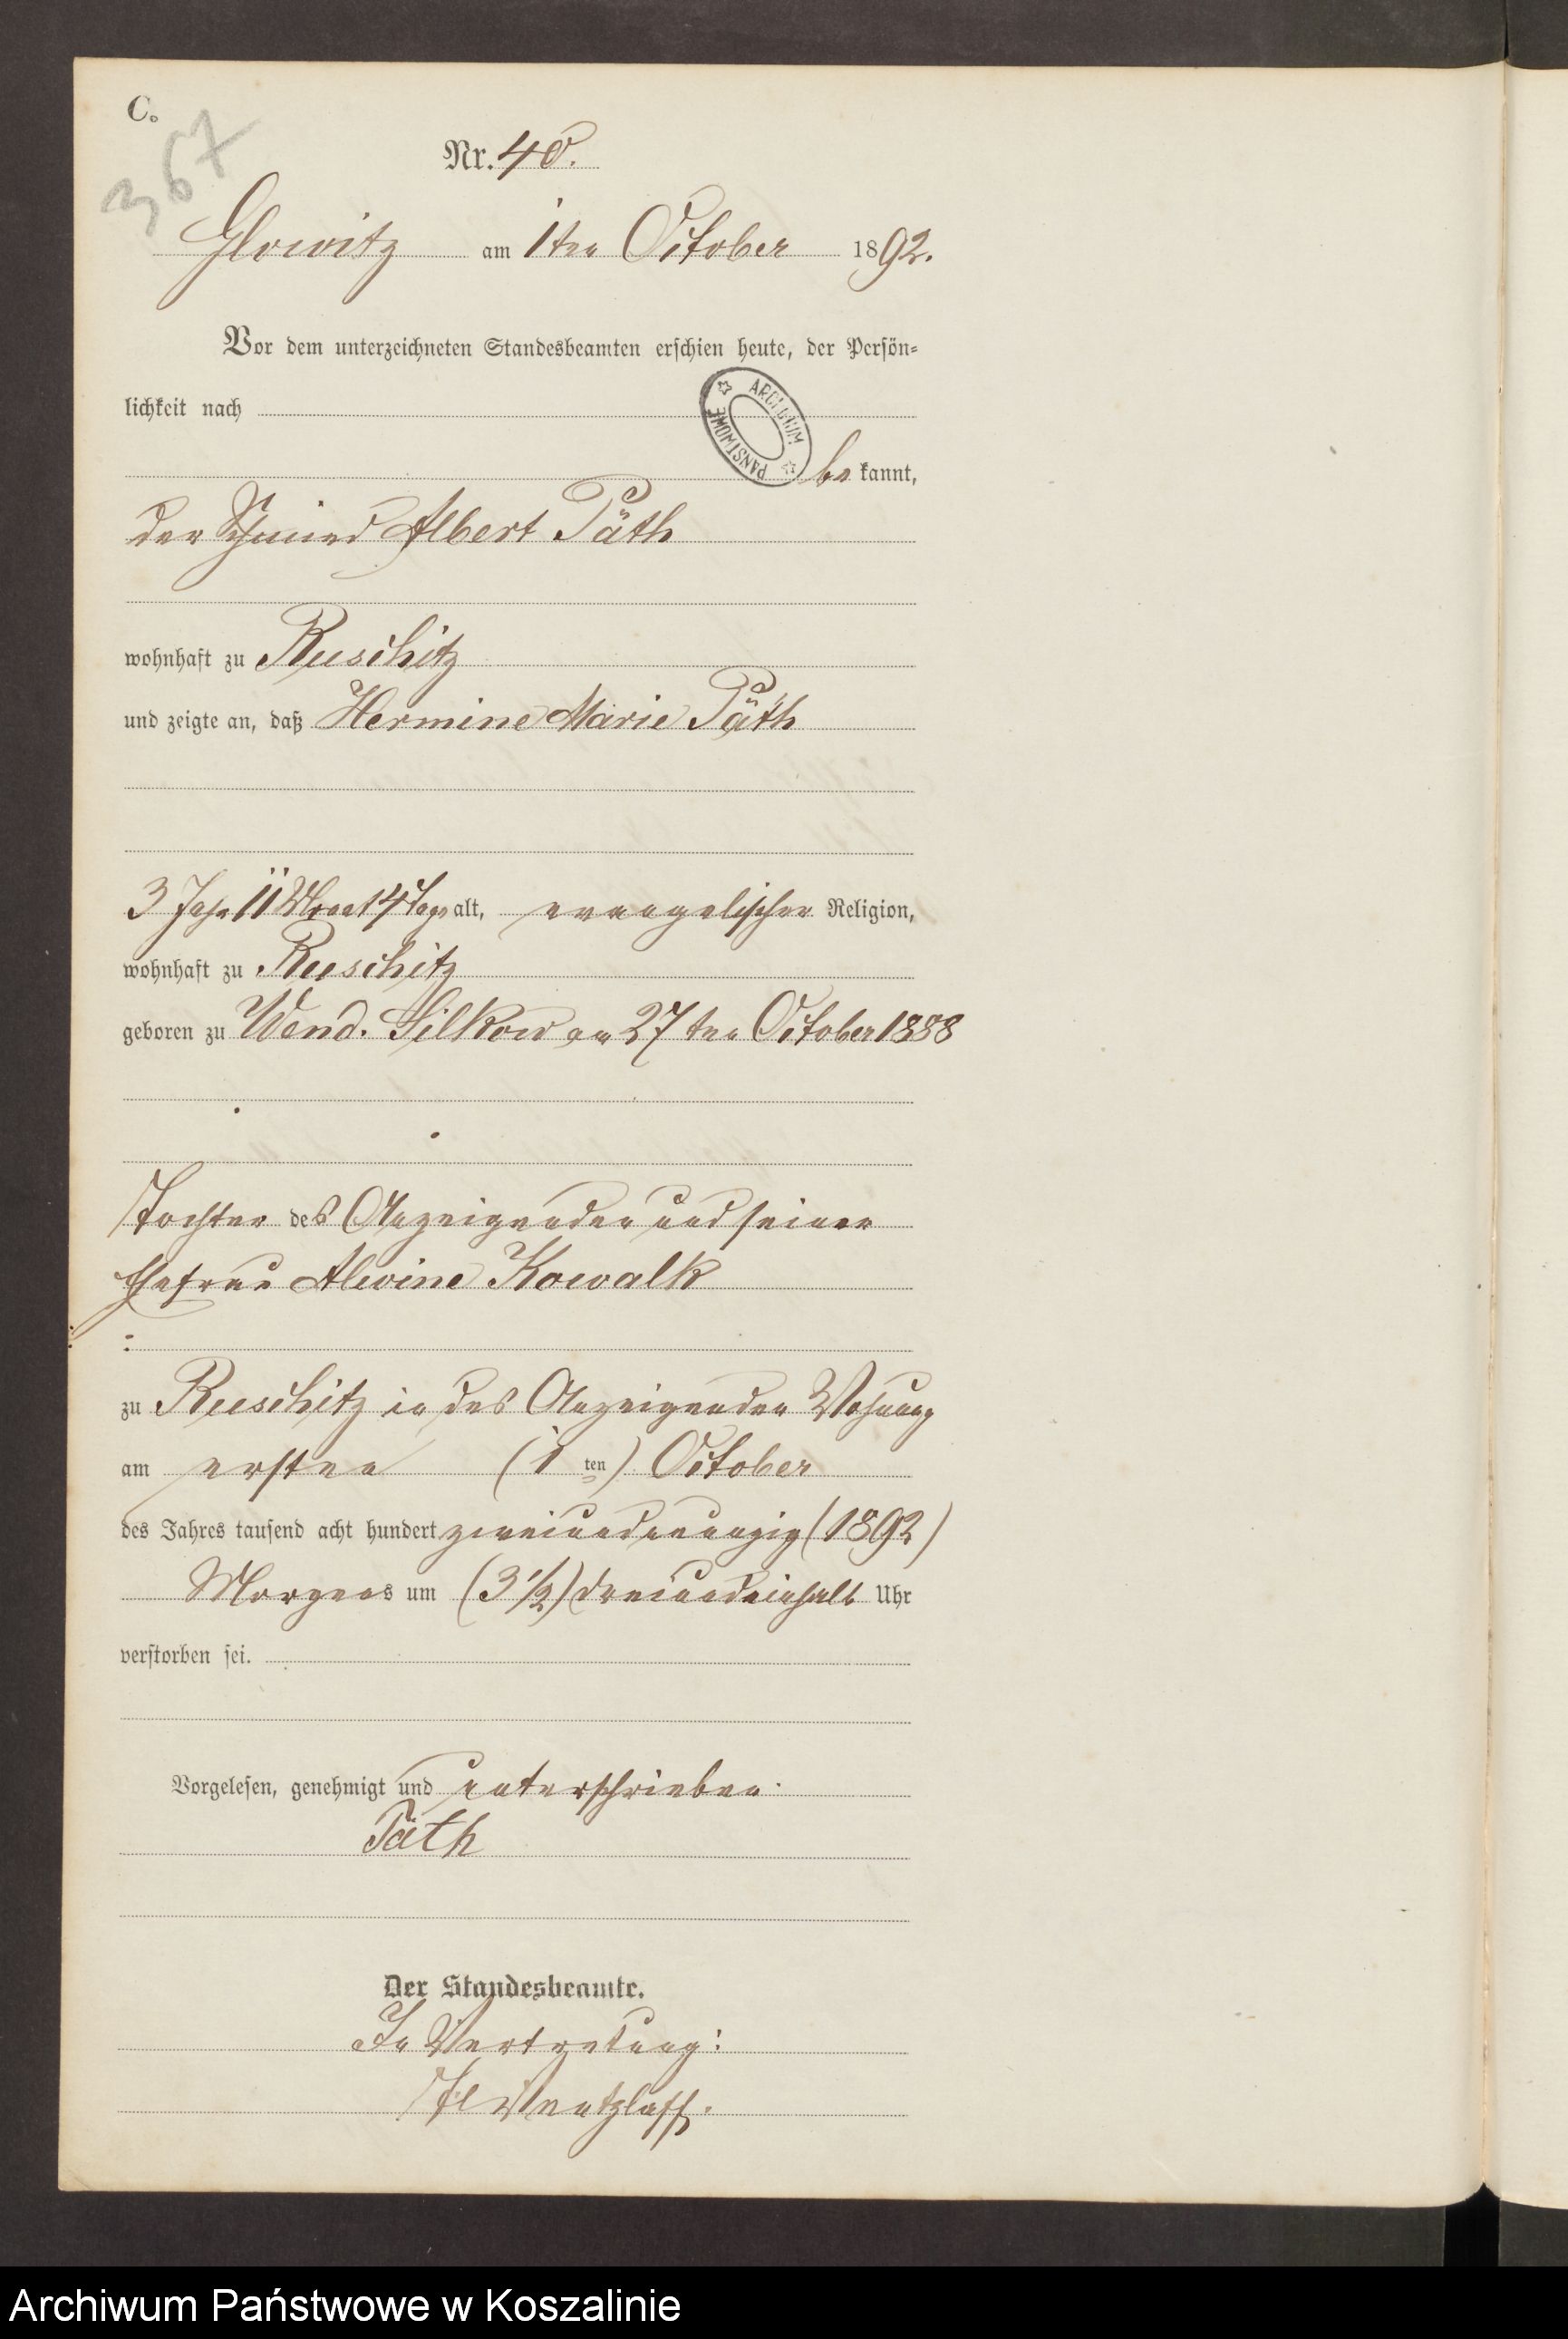 C.
367
Nr. 40.
Glowitz am 1ten October 1892.
Vor dem unterzeichneten Standesbeamten erschien heute, der Persön-
lichkeit nach
ARCHIWUM PAŃSTWOWE
be kannt,
der Schmied Albert Päth
wohnhaft zu Ruschitz
und zeigte an, daß Hermine Marie Päth
3 Jahr 11 Monat 14 Tage alt, evangelischer Religion,
wohnhaft zu Ruschitz
geboren zu Wend. Silkow am 27ten October 1888
Tochter des Anzeigenden und seiner
Ehefrau Alwine Kowalk
zu Ruschitz in des Anzeigenden Wohnung
am ersten (1 ten) October
des Jahres tausend acht hundert zweiundneunzig (1892)
Morgens um (3 1/2) dreiundeinhalb Uhr
verstorben sei.
Vorgelesen, genehmigt und unterschrieben.
Päth
Der Standesbeamte.
In Vertretung:
Wentzlaff.
Archiwum Państwowe w Koszalinie